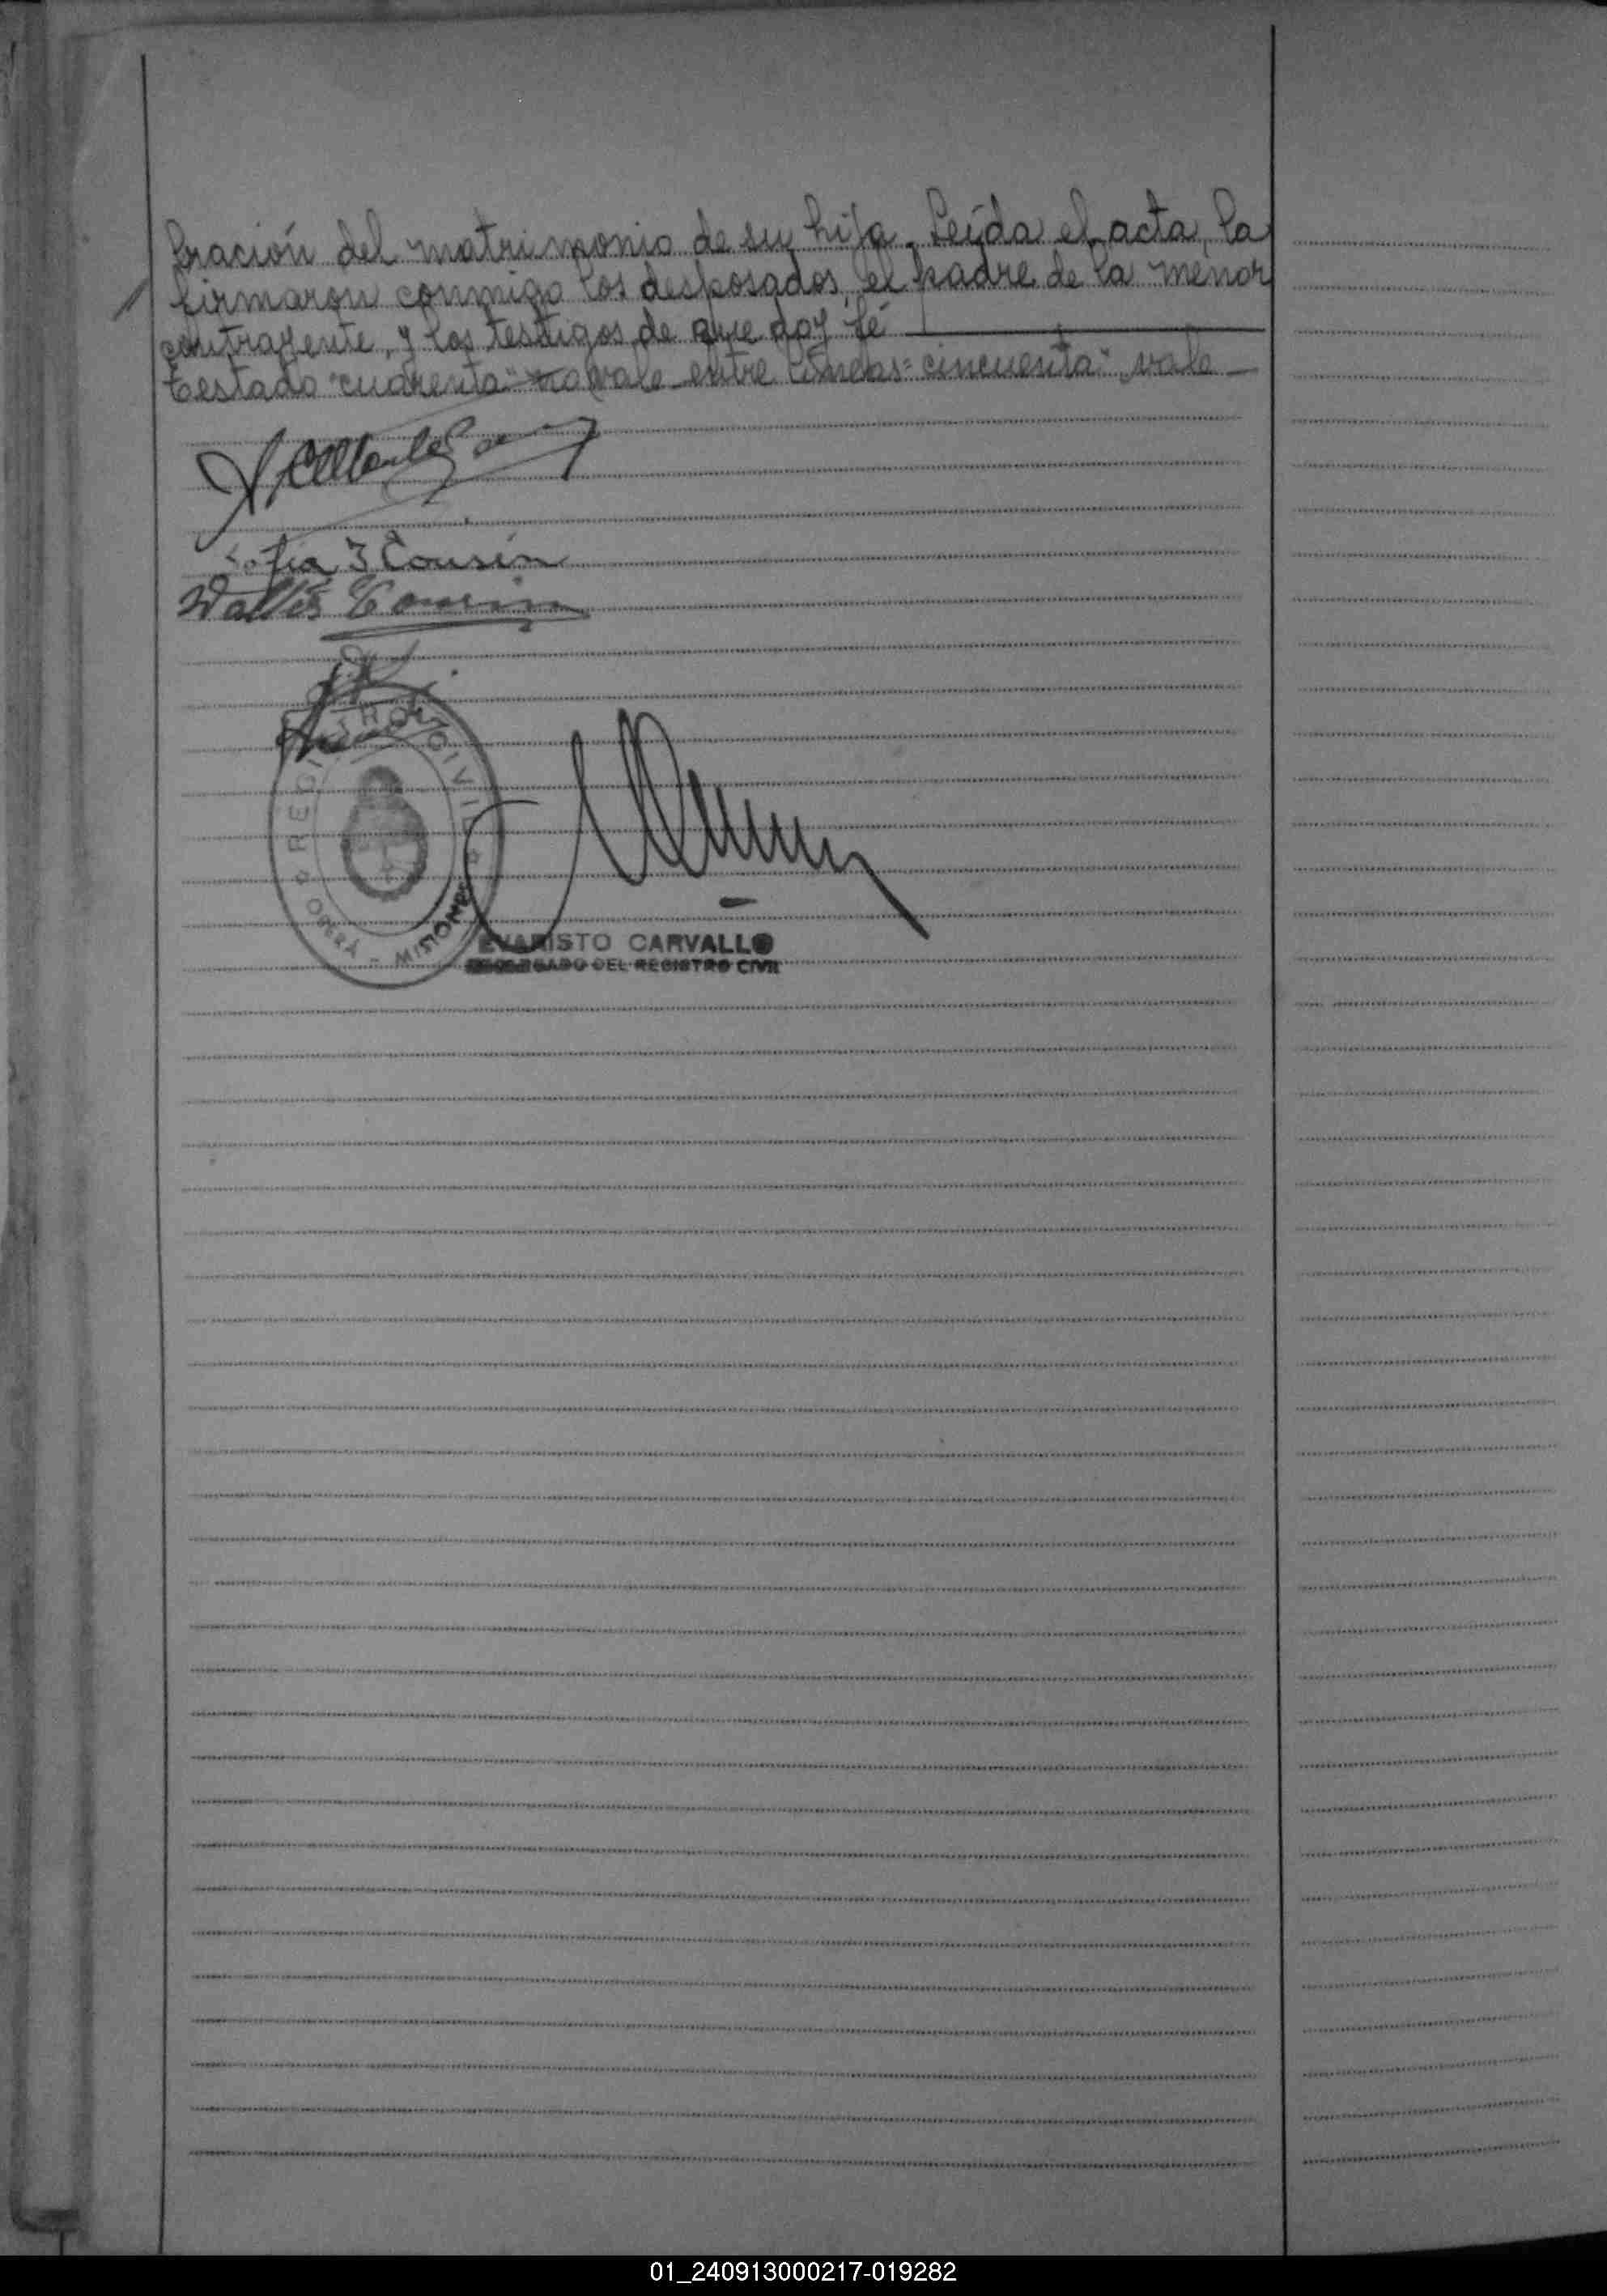 bración del matrimonio de su hija. Leída el acta, la
firmaron conmigo los desposados, el padre de la menor
contrayente, y los testigos de que doy fé
Testado "cuarenta" no vale entre líneas = cincuenta" vale
Sofia J Cousin
Cousin
REGISTRO CIVIL
OBERÁ - MISIONES
EVARISTO CARVALLO
ENCARGADO DEL REGISTRO CIVIL
01_240913000217-019282